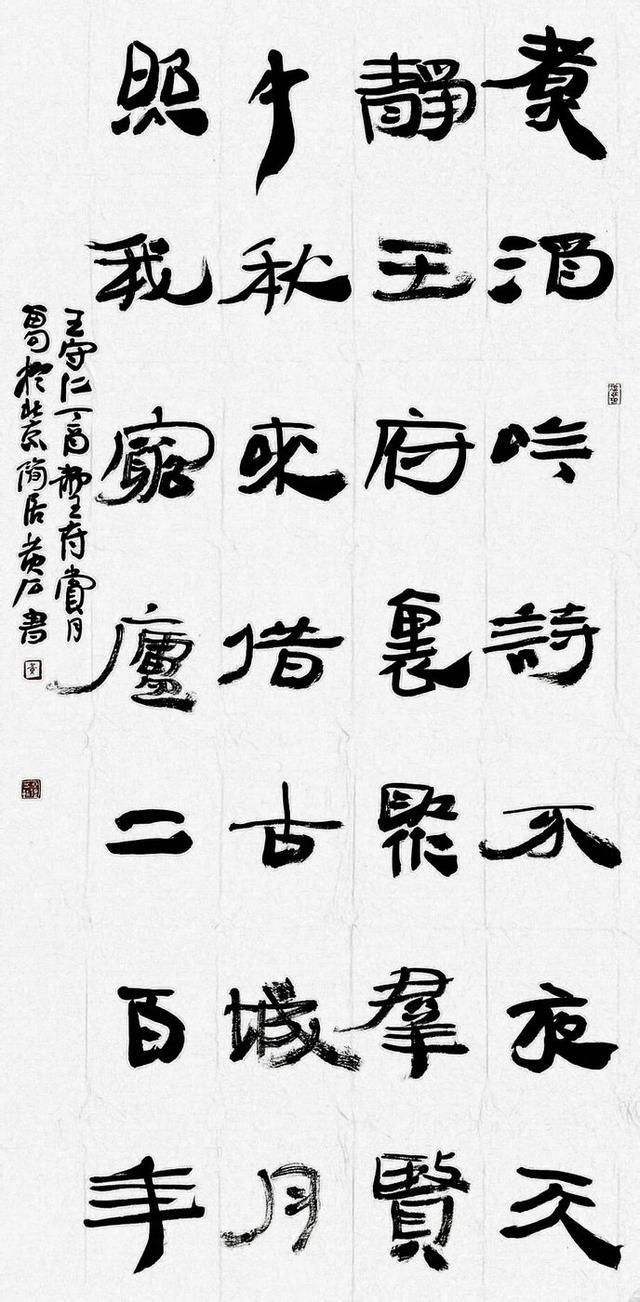 煮酒吟詩不夜天
靜王府裏聚羣賢
千秋來借古城月
照我廬二百年
王守仁丁酉王府賞月
於北京简居黄石書